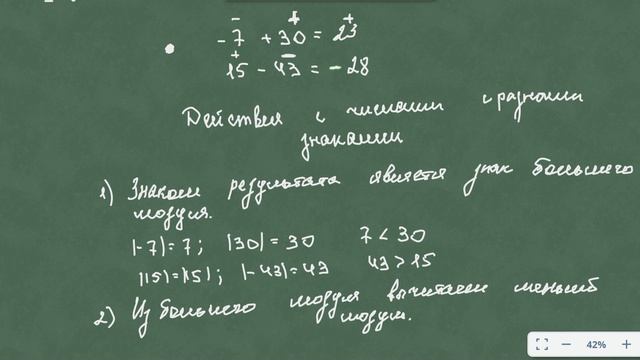 - + +
-7 + 30 = 23
+ -
15 - 43 = -28
Действия с числами с разными
знаками
1) Знаком результата является знак большего
модуля.
|-7| = 7; |30| = 30 7 < 30
|15| = |15|; |-43| = 43 43 > 15
2) Из большего модуля вычитаем меньший
модуль.
42%